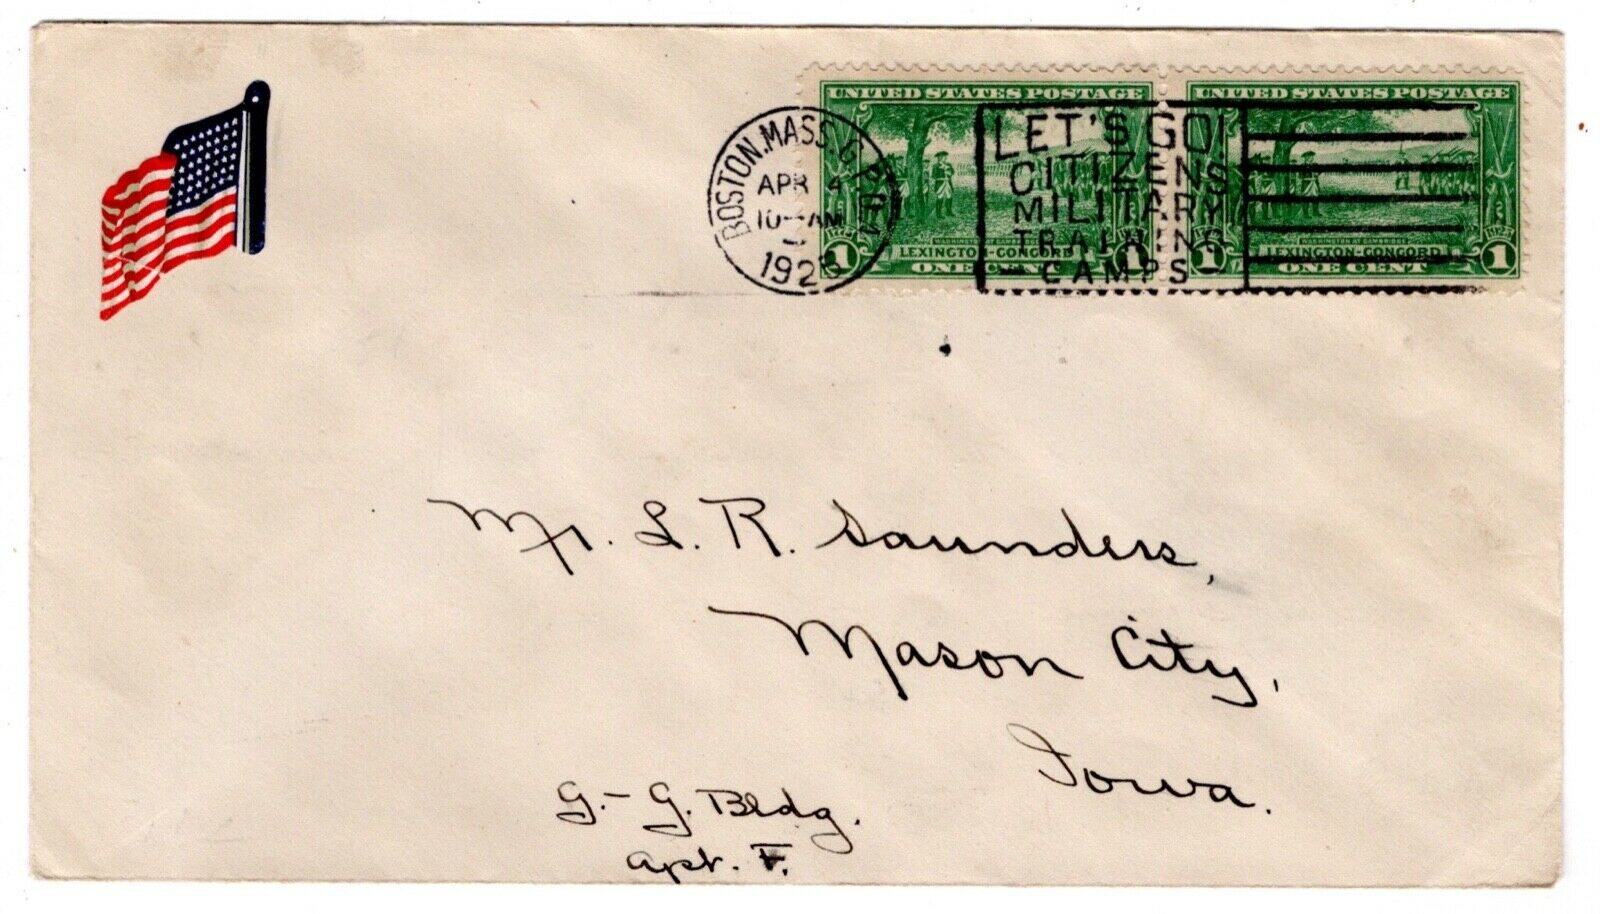 BOSTON, MASS. C.P.O.
APR 4
10-AM
192
UNITED STATES POSTAGE
1775
WASHINGTON AT CAMBRIDGE
LEXINGTON-CONCORD
1 ONE CENT 1
UNITED STATES POSTAGE
1775 1925
WASHINGTON AT CAMBRIDGE
LEXINGTON-CONCORD
1 ONE CENT 1
LET'S GO!
CITIZENS
MILITARY
TRAINING
CAMPS
Mr. L. R. Saunders,
Mason City,
Iowa.
G.-G. Bldg.
Apt. F.